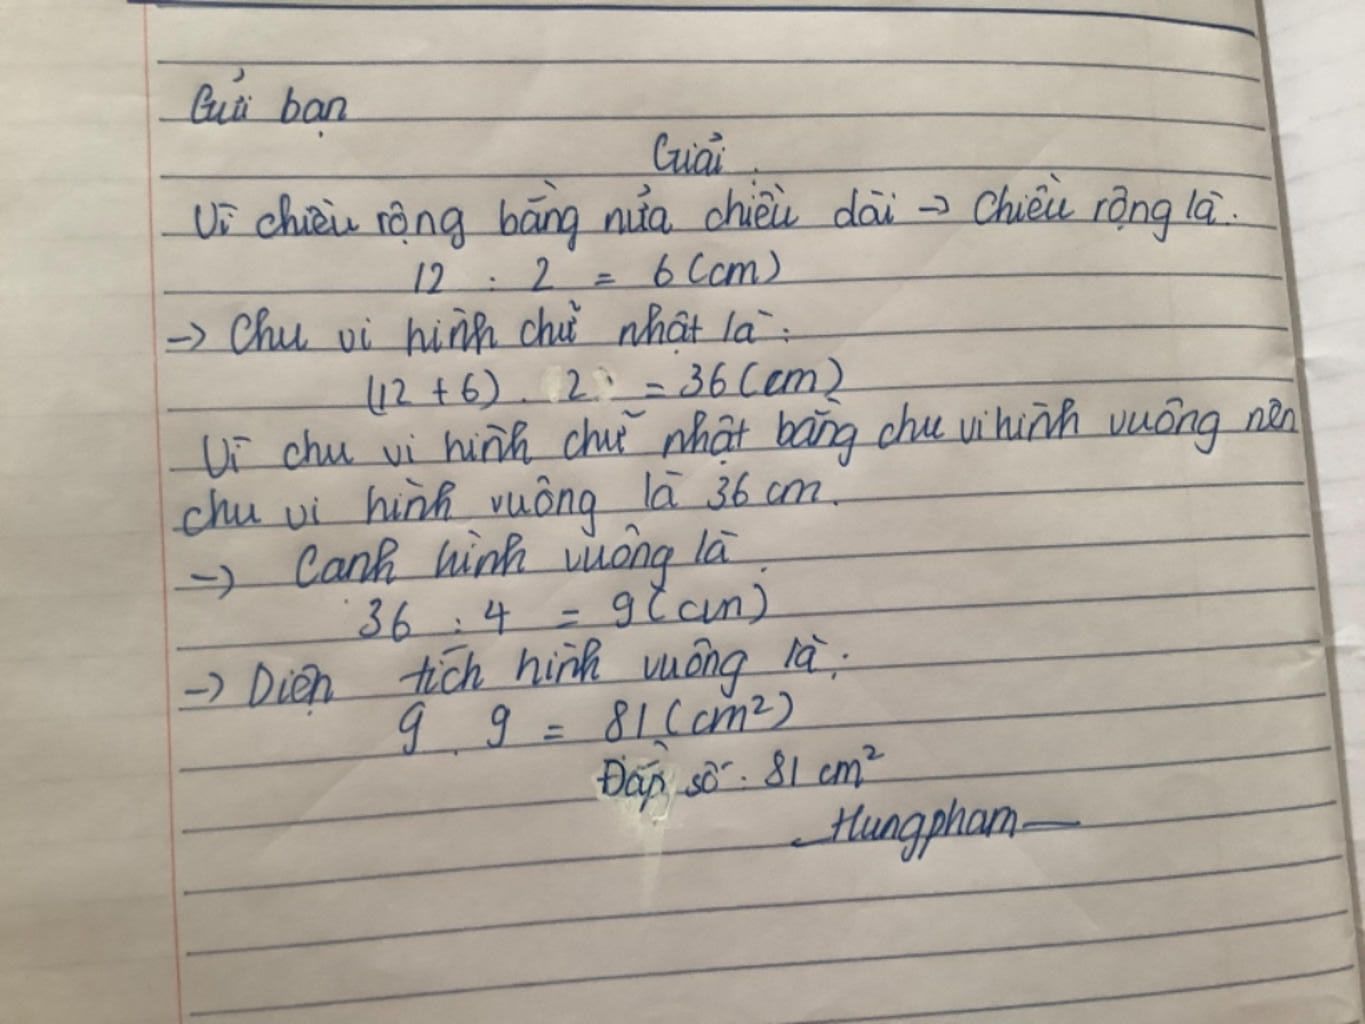 Gửi bạn
Giải.
Vì chiều rộng bằng nửa chiều dài -> Chiều rộng là.
12 : 2 = 6 (cm)
-> Chu vi hình chữ nhật là:
(12 + 6) . 2 = 36 (cm)
Vì chu vi hình chữ nhật bằng chu vi hình vuông nên
chu vi hình vuông là 36 cm.
-> Canh hình vuông là.
36 : 4 = 9 (cm)
-> Diện tích hình vuông là:
9 . 9 = 81 (cm²)
Đáp số: 81 cm²
Hungpham